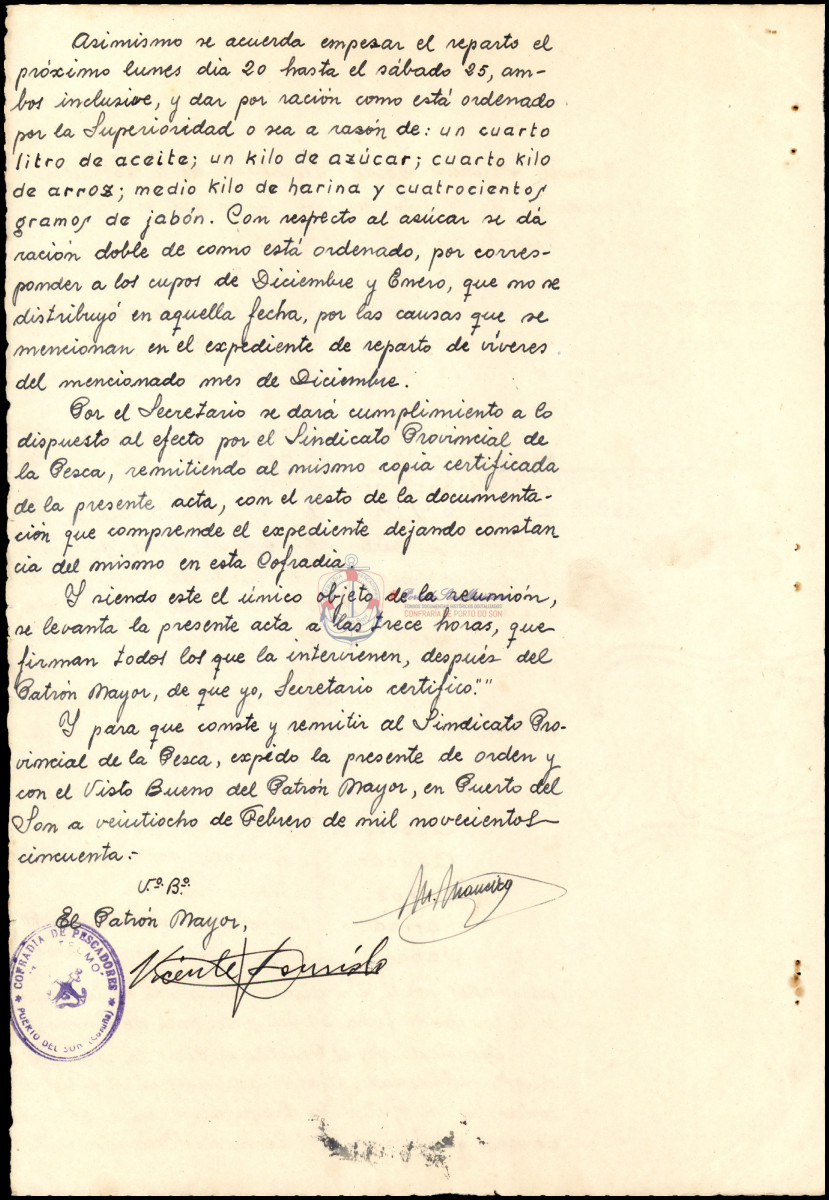 Asimismo se acuerda empesar el reparto el
próximo lunes dia 20 hasta el sábado 25, am-
bos inclusive, y dar por ración como está ordenado
por la Superioridad o sea a rasón de: un cuarto
litro de aceite; un kilo de azúcar; cuarto kilo
de arroz; medio kilo de harina y cuatrocientos
gramos de jabón. Con respecto al asúcar se dá
ración doble de como está ordenado, por corres-
ponder a los cupos de Diciembre y Enero, que no se
distribuyó en aquella fecha, por las causas que se
mencionan en el expediente de reparto de víveres
del mencionado mes de Diciembre.
Por el Secretario se dará cumplimiento a lo
dispuesto al efecto por el Sindicato Provincial de
la Pesca, remitiendo al mismo copia certificada
de la presente acta, con el resto de la documenta-
ción que comprende el expediente dejando constan
cia del mismo en esta Cofradia.
Y siendo este el único objeto de la reunión,
se levanta la presente acta a las trece horas, que
firman todos los que la intervienen, después del
Patrón Mayor, de que yo, Secretario certifico.""
Y para que conste y remitir al Sindicato Pro-
vincial de la Pesca, expido la presente de orden y
con el Visto Bueno del Patrón Mayor, en Puerto del
Son a veintiocho de Febrero de mil novecientos
cincuenta.-
V.º B.º
El Patrón Mayor,
Vicente
COFRADIA DE PESCADORES
PUERTO DEL SON (Coruña)
FONDOS DOCUMENTAIS HISTÓRICOS DIXITALIZADOS
CONFRARÍA DE PORTO DO SON